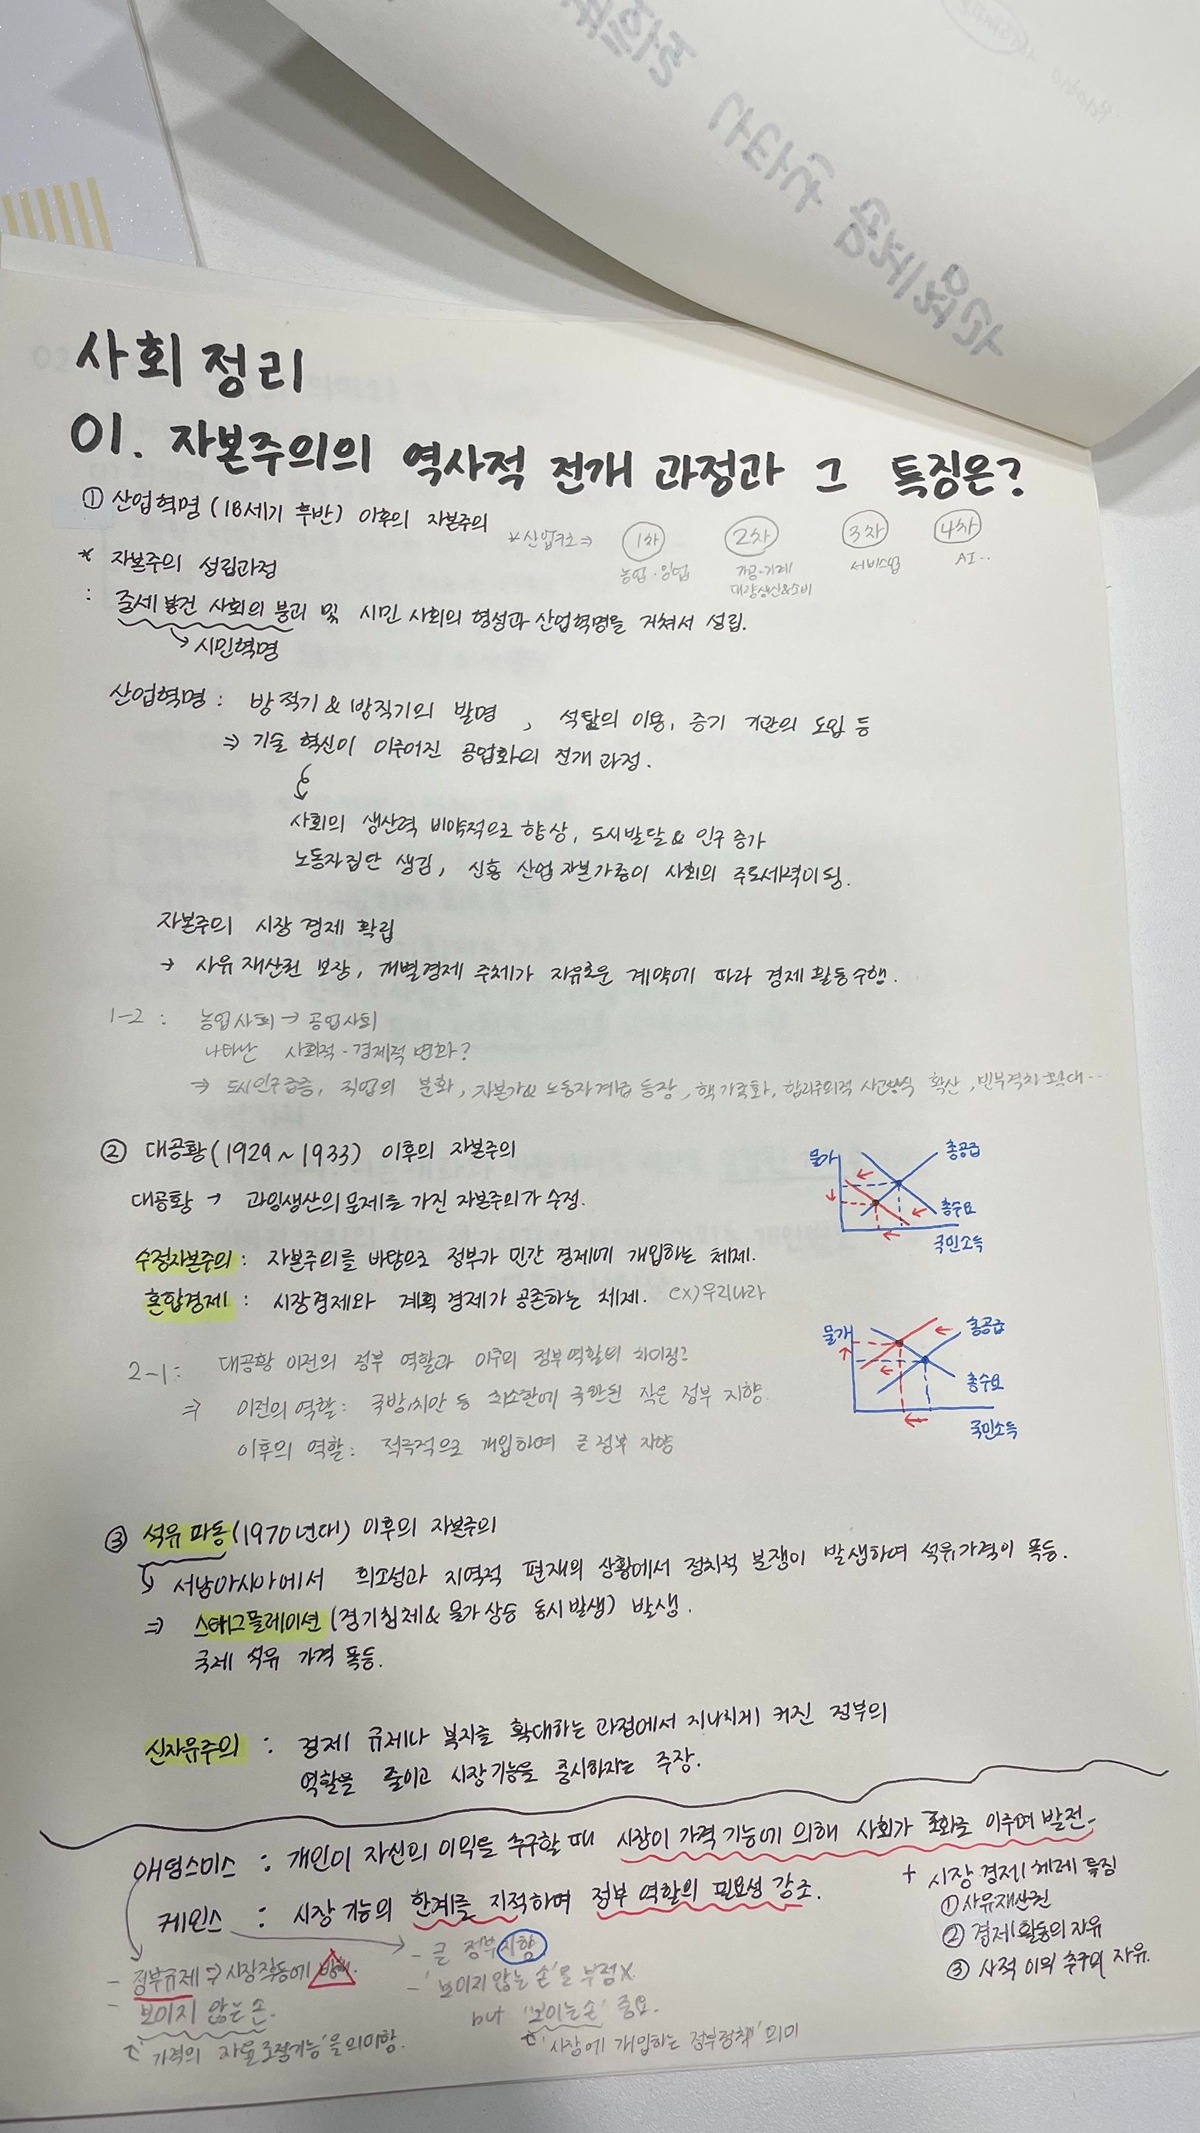 사회 정리
01. 자본주의의 역사적 전개 과정과 그 특징은?
① 산업혁명 (18세기 후반) 이후의 자본주의
*산업구조 ⇒ 1차 2차 3차 4차
농업·임업 가공·기계 서비스업 AI..
대량생산&소비
* 자본주의 성립과정
: 중세 봉건 사회의 붕괴 및 시민 사회의 형성과 산업혁명을 거쳐서 성립.
↳ 시민혁명
산업혁명 : 방적기 & 방직기의 발명 , 석탄의 이용, 증기 기관의 도입 등
⇒ 기술 혁신이 이루어진 공업화의 전개 과정.
사회의 생산력 비약적으로 향상, 도시발달 & 인구 증가
노동자집단 생김, 신흥 산업 자본가층이 사회의 주도세력이 됨.
자본주의 시장 경제 확립
→ 사유 재산권 보장, 개별경제 주체가 자유로운 계약에 따라 경제 활동 수행.
1-2 : 농업사회 → 공업사회
나타난 사회적·경제적 변화?
⇒ 도시인구급증, 직업의 분화, 자본가& 노동자계급 등장, 핵가족화, 합리주의적 사고방식 확산, 빈부격차 확대...
② 대공황 (1929 ~ 1933) 이후의 자본주의
대공황 → 과잉생산의 문제를 가진 자본주의가 수정.
수정자본주의 : 자본주의를 바탕으로 정부가 민간 경제에 개입하는 체제.
혼합경제 : 시장경제와 계획 경제가 공존하는 체제. ex) 우리나라
물가 총공급
총수요
국민소득
2-1 : 대공황 이전의 정부 역할과 이후의 정부역할의 차이점?
⇒ 이전의 역할 : 국방, 치안 등 최소한에 국한된 작은 정부 지향.
이후의 역할 : 적극적으로 개입하며 큰 정부 지향
물가 총공급
총수요
국민소득
③ 석유 파동 (1970년대) 이후의 자본주의
↳ 서남아시아에서 희소성과 지역적 편재의 상황에서 정치적 분쟁이 발생하여 석유가격이 폭등.
⇒ 스태그플레이션 (경기침체 & 물가 상승 동시 발생) 발생.
국제 석유 가격 폭등.
신자유주의 : 경제 규제나 복지를 확대하는 과정에서 지나치게 커진 정부의
역할을 줄이고 시장 기능을 중시하자는 주장.
애덤스미스 : 개인이 자신의 이익을 추구할 때 시장이 가격 기능에 의해 사회가 조화를 이루며 발전.
케인스 : 시장 기능의 한계를 지적하며 정부 역할의 필요성 강조.
+ 시장 경제 체제 특징
① 사유재산권
② 경제활동의 자유
③ 사적 이익 추구의 자유.
- 정부규제 ⇒ 시장작동에 방해.
- 보이지 않는 손.
↑ '가격의 자율조절기능'을 의미함.
- 큰 정부 지향
- '보이지 않는 손'을 부정 X.
but '보이는 손' 중요.
↑ '시장에 개입하는 정부정책' 의미